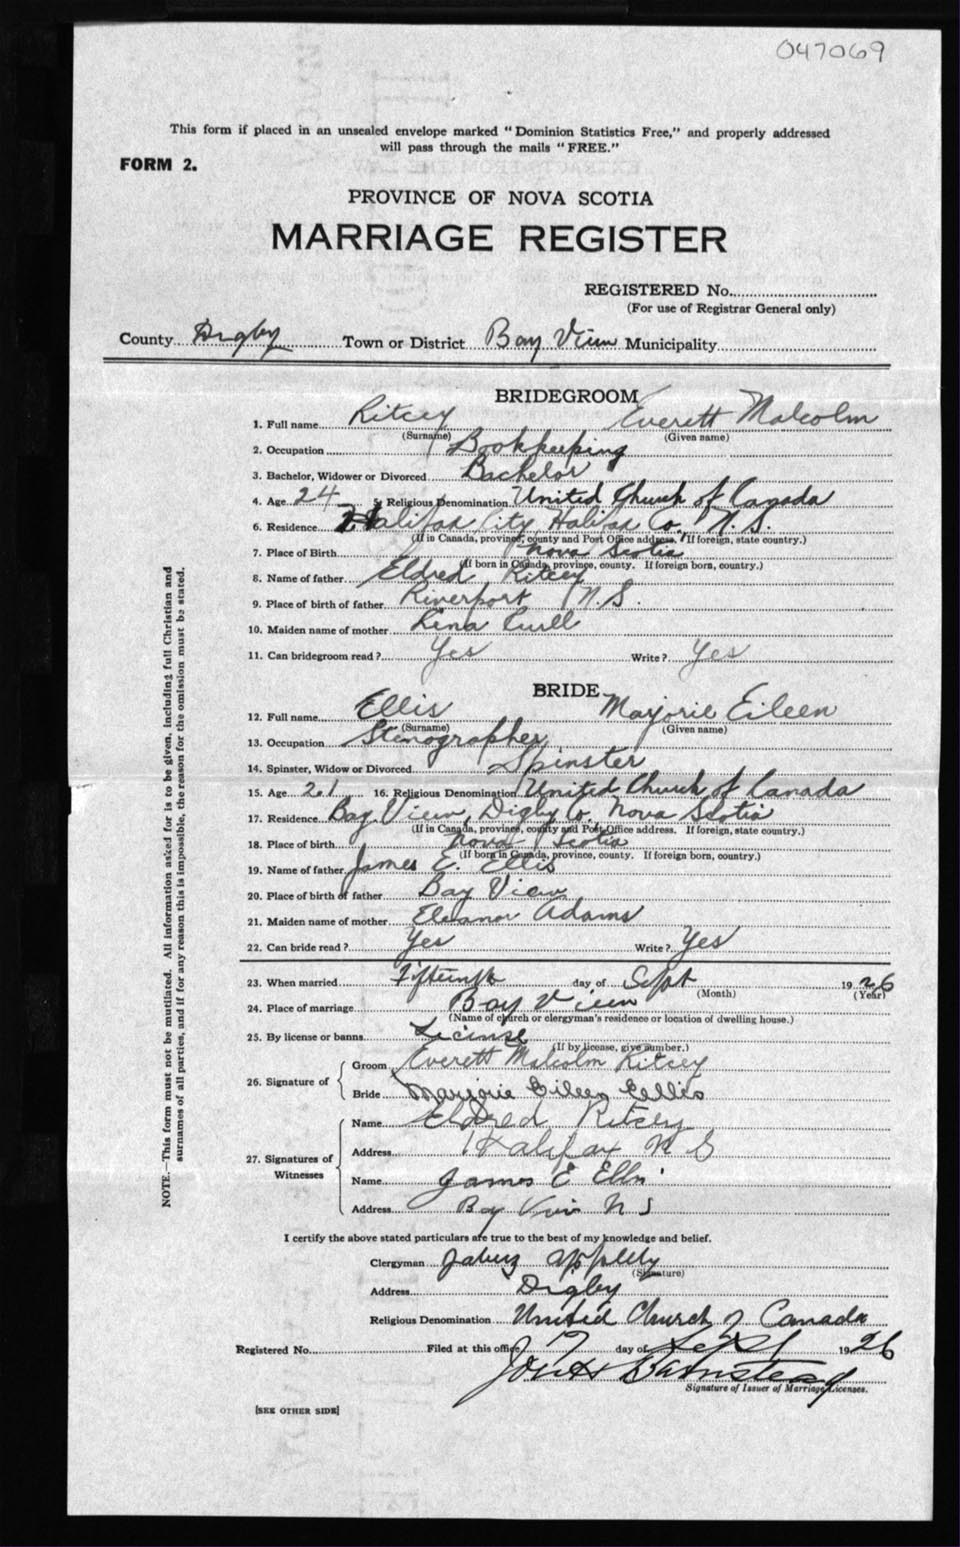 047069
This form if placed in an unsealed envelope marked "Dominion Statistics Free," and properly addressed
will pass through the mails "FREE."
FORM 2.
PROVINCE OF NOVA SCOTIA
MARRIAGE REGISTER
REGISTERED No.
(For use of Registrar General only)
County Digby Town or District Bay View Municipality
BRIDEGROOM
1. Full name Ritcey Everett Malcolm
(Surname) (Given name)
2. Occupation Bookkeeping
3. Bachelor, Widower or Divorced Bachelor
4. Age 24 5. Religious Denomination United Church of Canada
6. Residence Halifax City Halifax Co. N.S.
(If in Canada, province, county and Post Office address. If foreign, state country.)
7. Place of Birth Nova Scotia
(If born in Canada, province, county. If foreign born, country.)
8. Name of father Eldred Ritcey
9. Place of birth of father Riverport N.S.
10. Maiden name of mother Lena
11. Can bridegroom read? Yes Write? Yes
BRIDE
12. Full name Ellis Marjorie Eileen
(Surname) (Given name)
13. Occupation Stenographer
14. Spinster, Widow or Divorced Spinster
15. Age 21 16. Religious Denomination United Church of Canada
17. Residence Bay View, Digby Co. Nova Scotia
(If in Canada, province, county and Post Office address. If foreign, state country.)
18. Place of birth Nova Scotia
(If born in Canada, province, county. If foreign born, country.)
19. Name of father James E. Ellis
20. Place of birth of father Bay View
21. Maiden name of mother Eleanor Adams
22. Can bride read? Yes Write? Yes
23. When married Fifteenth day of Sept 1926
(Month) (Year)
24. Place of marriage Bay View
(Name of church or clergyman's residence or location of dwelling house.)
25. By license or banns License
(If by license, give number.)
26. Signature of
Groom Everett Malcolm Ritcey
Bride Marjorie Eileen Ellis
27. Signatures of Witnesses
Name Eldred Ritcey
Address Halifax N S
Name James E Ellis
Address Bay View N S
I certify the above stated particulars are true to the best of my knowledge and belief.
Clergyman Jabez Appleby
(Signature)
Address Digby
Religious Denomination United Church of Canada
Registered No. Filed at this office 17 day of Sept 1926
Barnstead
Signature of Issuer of Marriage Licenses.
[SEE OTHER SIDE]
NOTE.—This form must not be mutilated. All information asked for is to be given, including full Christian and
surnames of all parties, and if for any reason this is impossible, the reason for the omission must be stated.